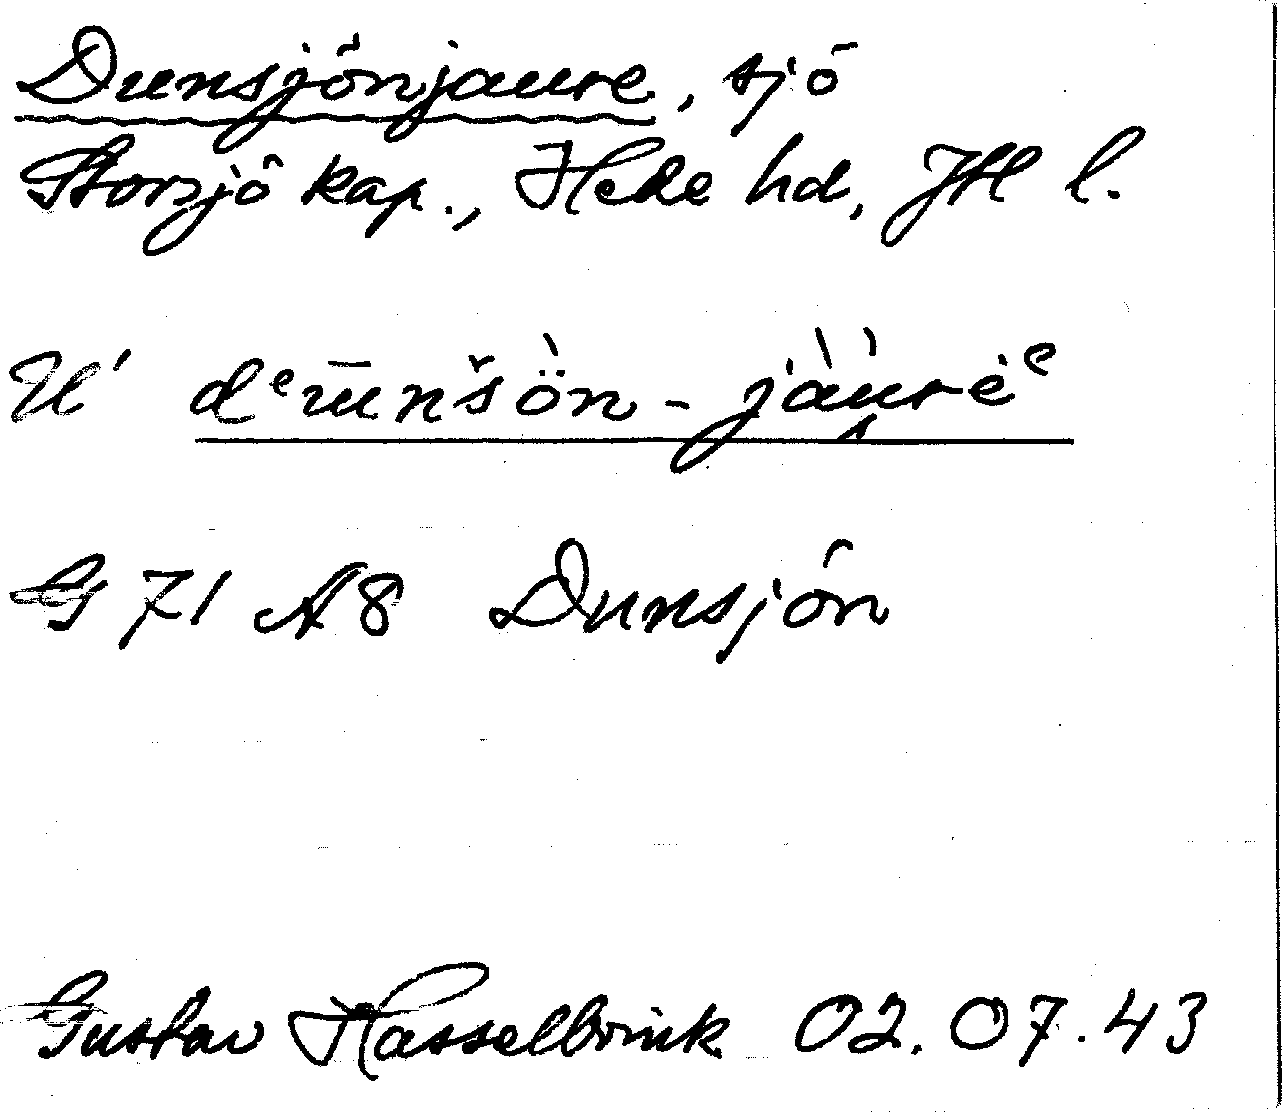 Dunsjönjaure, sjö
Storsjö kap., Hede hd, JH l.
U' dᵉūnšö̀n - jàù̯rèᵉ
G 71 A8 Dunsjön
Gustav Hasselbrink 02.07.43